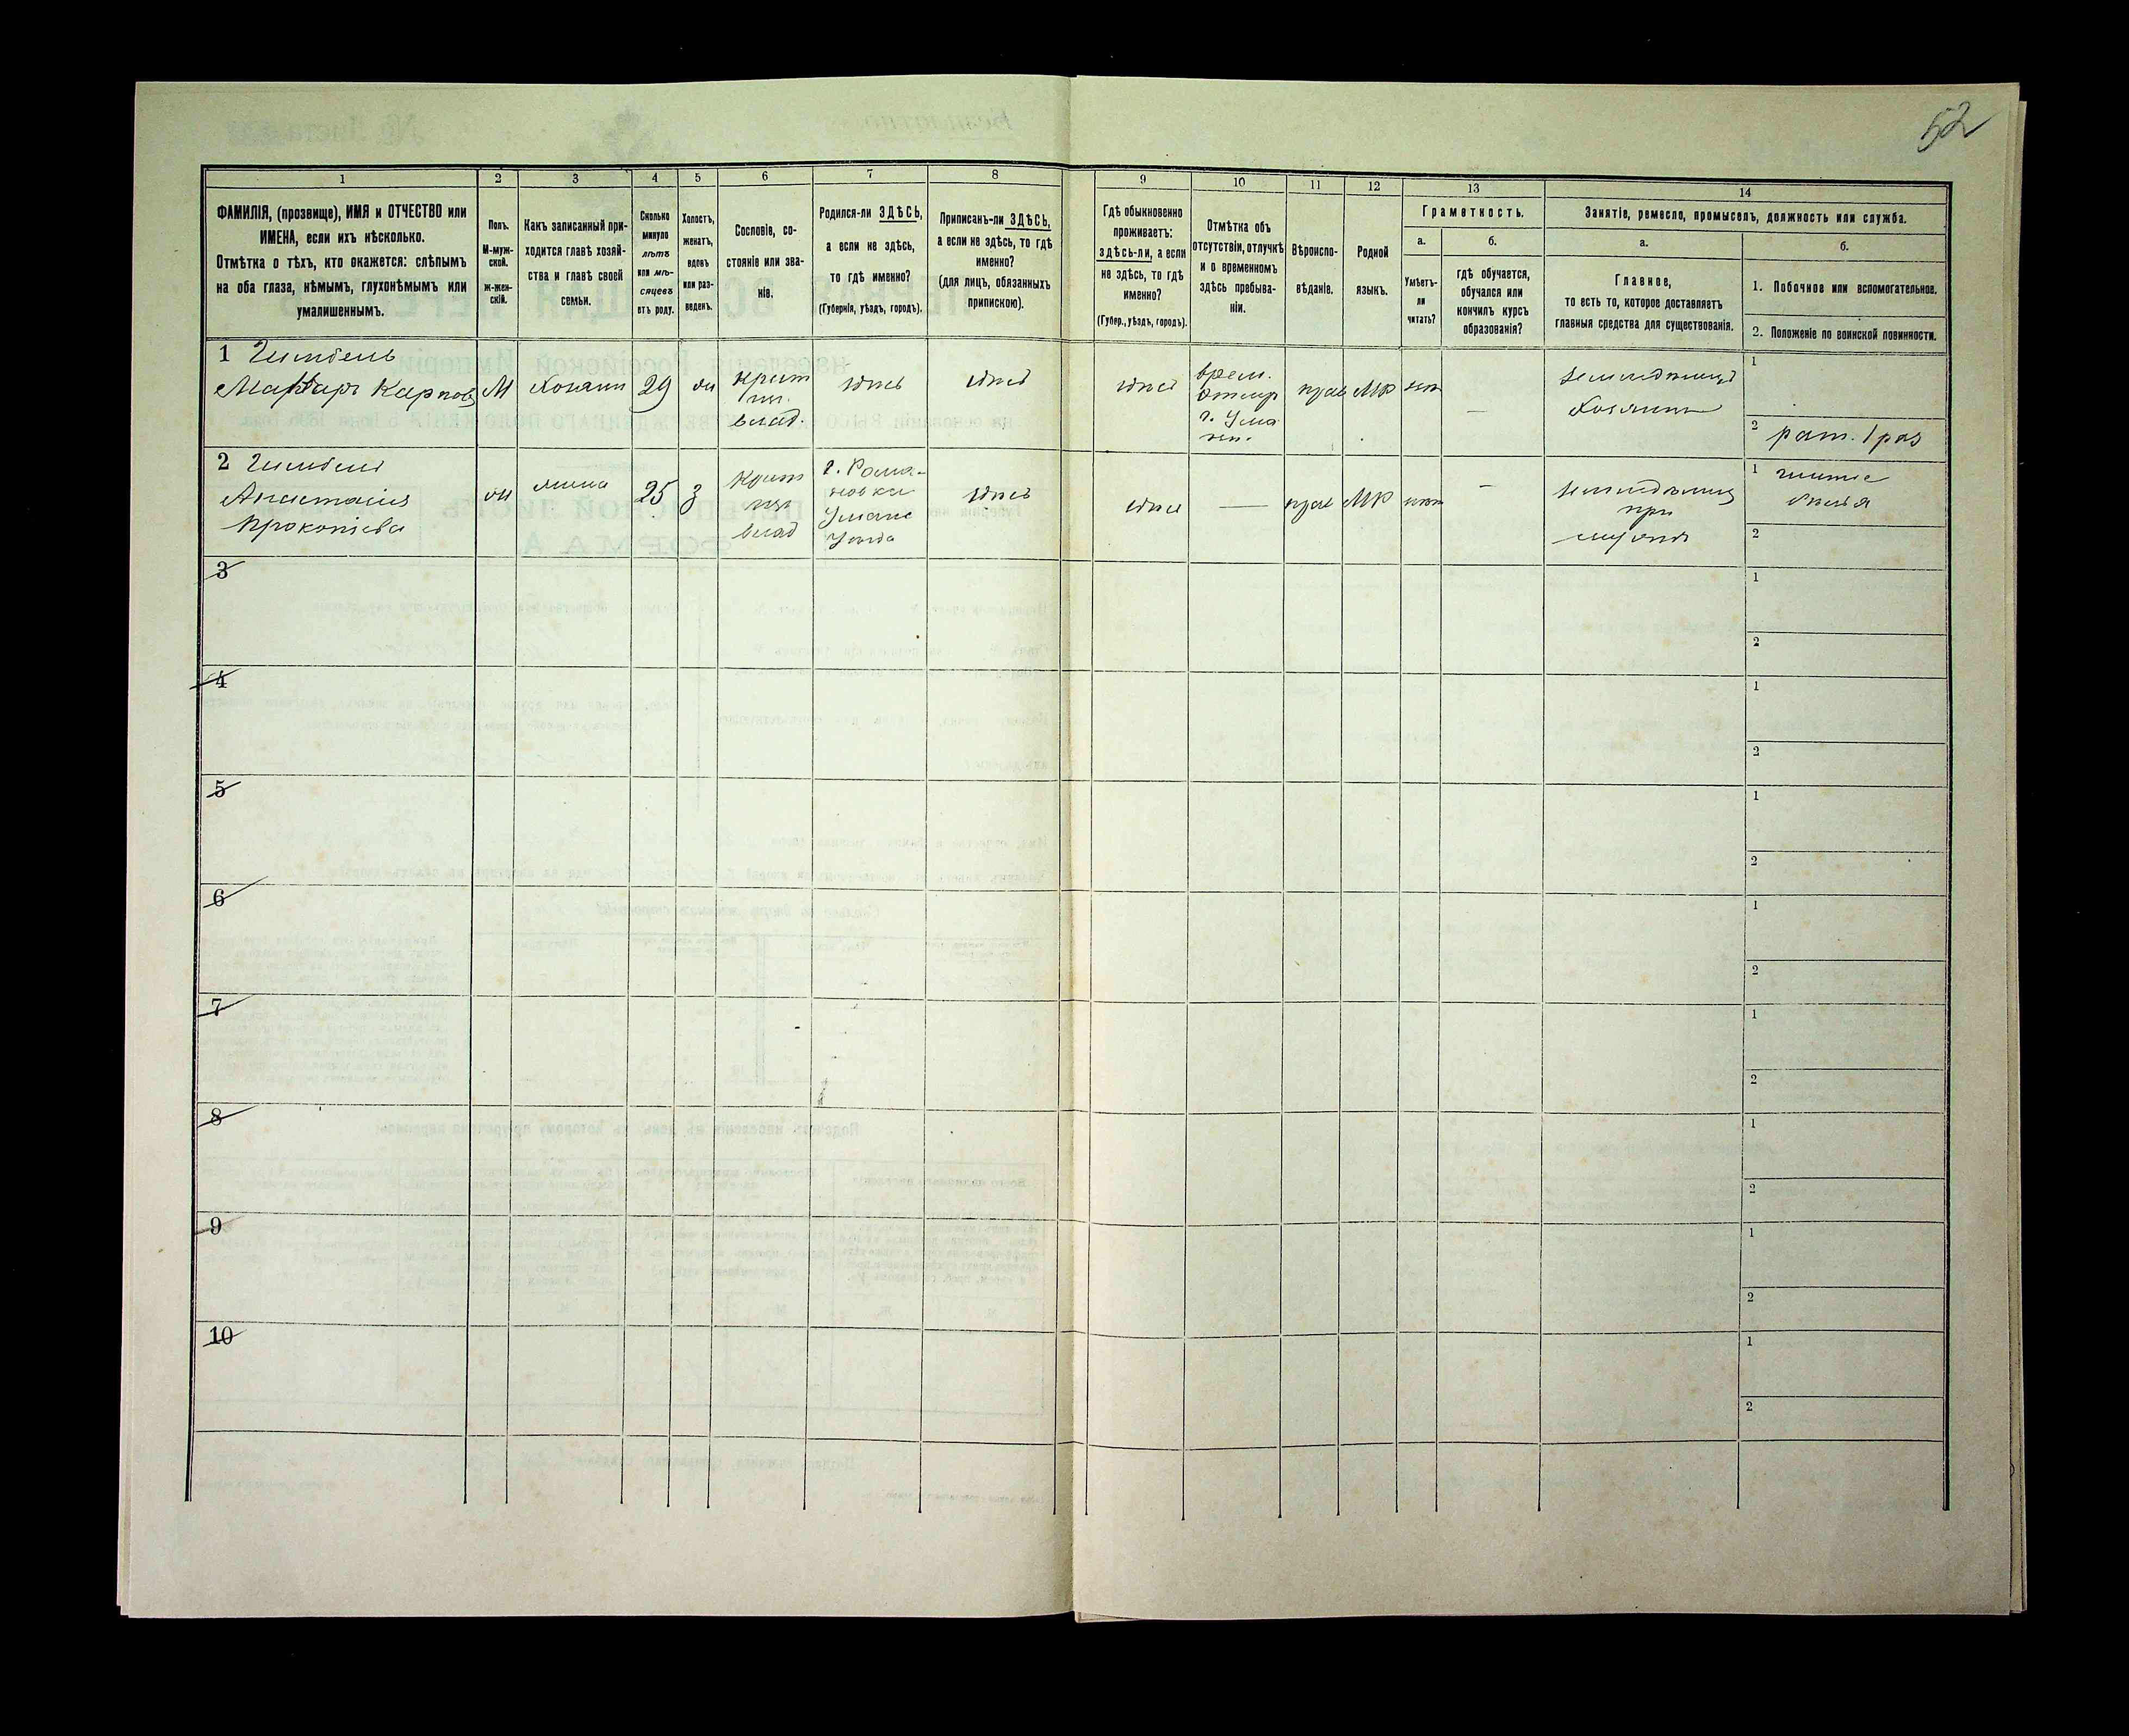 52
1
2
3
4
5
6
7
8
9
10
11
12
13
14
ФАМИЛІЯ, (прозвище), ИМЯ и ОТЧЕСТВО или
ИМЕНА, если ихъ нѣсколько.
Отмѣтка о тѣхъ, кто окажется: слѣпымъ
на оба глаза, нѣмымъ, глухонѣмымъ или
умалишеннымъ.
Полъ.
М-муж-
ской.
ж-жен-
скій.
Какъ записанный при-
ходится главѣ хозяй-
ства и главѣ своей
семьи.
Сколько
минуло
лѣтъ
или мѣ-
сяцевъ
отъ роду.
Холостъ,
женатъ,
вдовъ
или раз-
веденъ.
Сословіе, со-
стояніе или зва-
ніе.
Родился-ли ЗДѢСЬ,
а если не здѣсь,
то гдѣ именно?
(Губернія, уѣздъ, городъ).
Приписанъ-ли ЗДѢСЬ,
а если не здѣсь, то гдѣ
именно?
(для лицъ, обязанныхъ
припискою).
Гдѣ обыкновенно
проживаетъ:
здѣсь-ли, а если
не здѣсь, то гдѣ
именно?
(Губер., уѣздъ, городъ).
Отмѣтка объ
отсутствіи, отлучкѣ
и о временномъ
здѣсь пребыва-
ніи.
Вѣроиспо-
вѣданіе.
Родной
языкъ.
Грамотность.
а.
Умѣетъ-
ли
читать?
б.
гдѣ обучается,
обучался или
кончилъ курсъ
образованія?
Занятіе, ремесло, промыселъ, должность или служба.
а.
Главное,
то есть то, которое доставляетъ
главныя средства для существованія.
б.
1. Побочное или вспомогательное.
2. Положеніе по воинской повинности.
1
Карпов
М
Хозяин
29
жн
крест
влад.
здѣсь
здѣсь
здѣсь
врем.
г. Ума
прав
МР
нет
—
Хозяин
1
2 рат. 1 раз
2
Анастасія
Прокопіева
ж
жена
25
З
Крест
влад
Рома-
новки
Уѣзда
здѣсь
здѣсь
—
прав
МР
нет
—
при
мужѣ
1 шитье
бѣлья
2
3
1
2
4
1
2
5
1
2
6
1
2
7
1
2
8
1
2
9
1
2
10
1
2